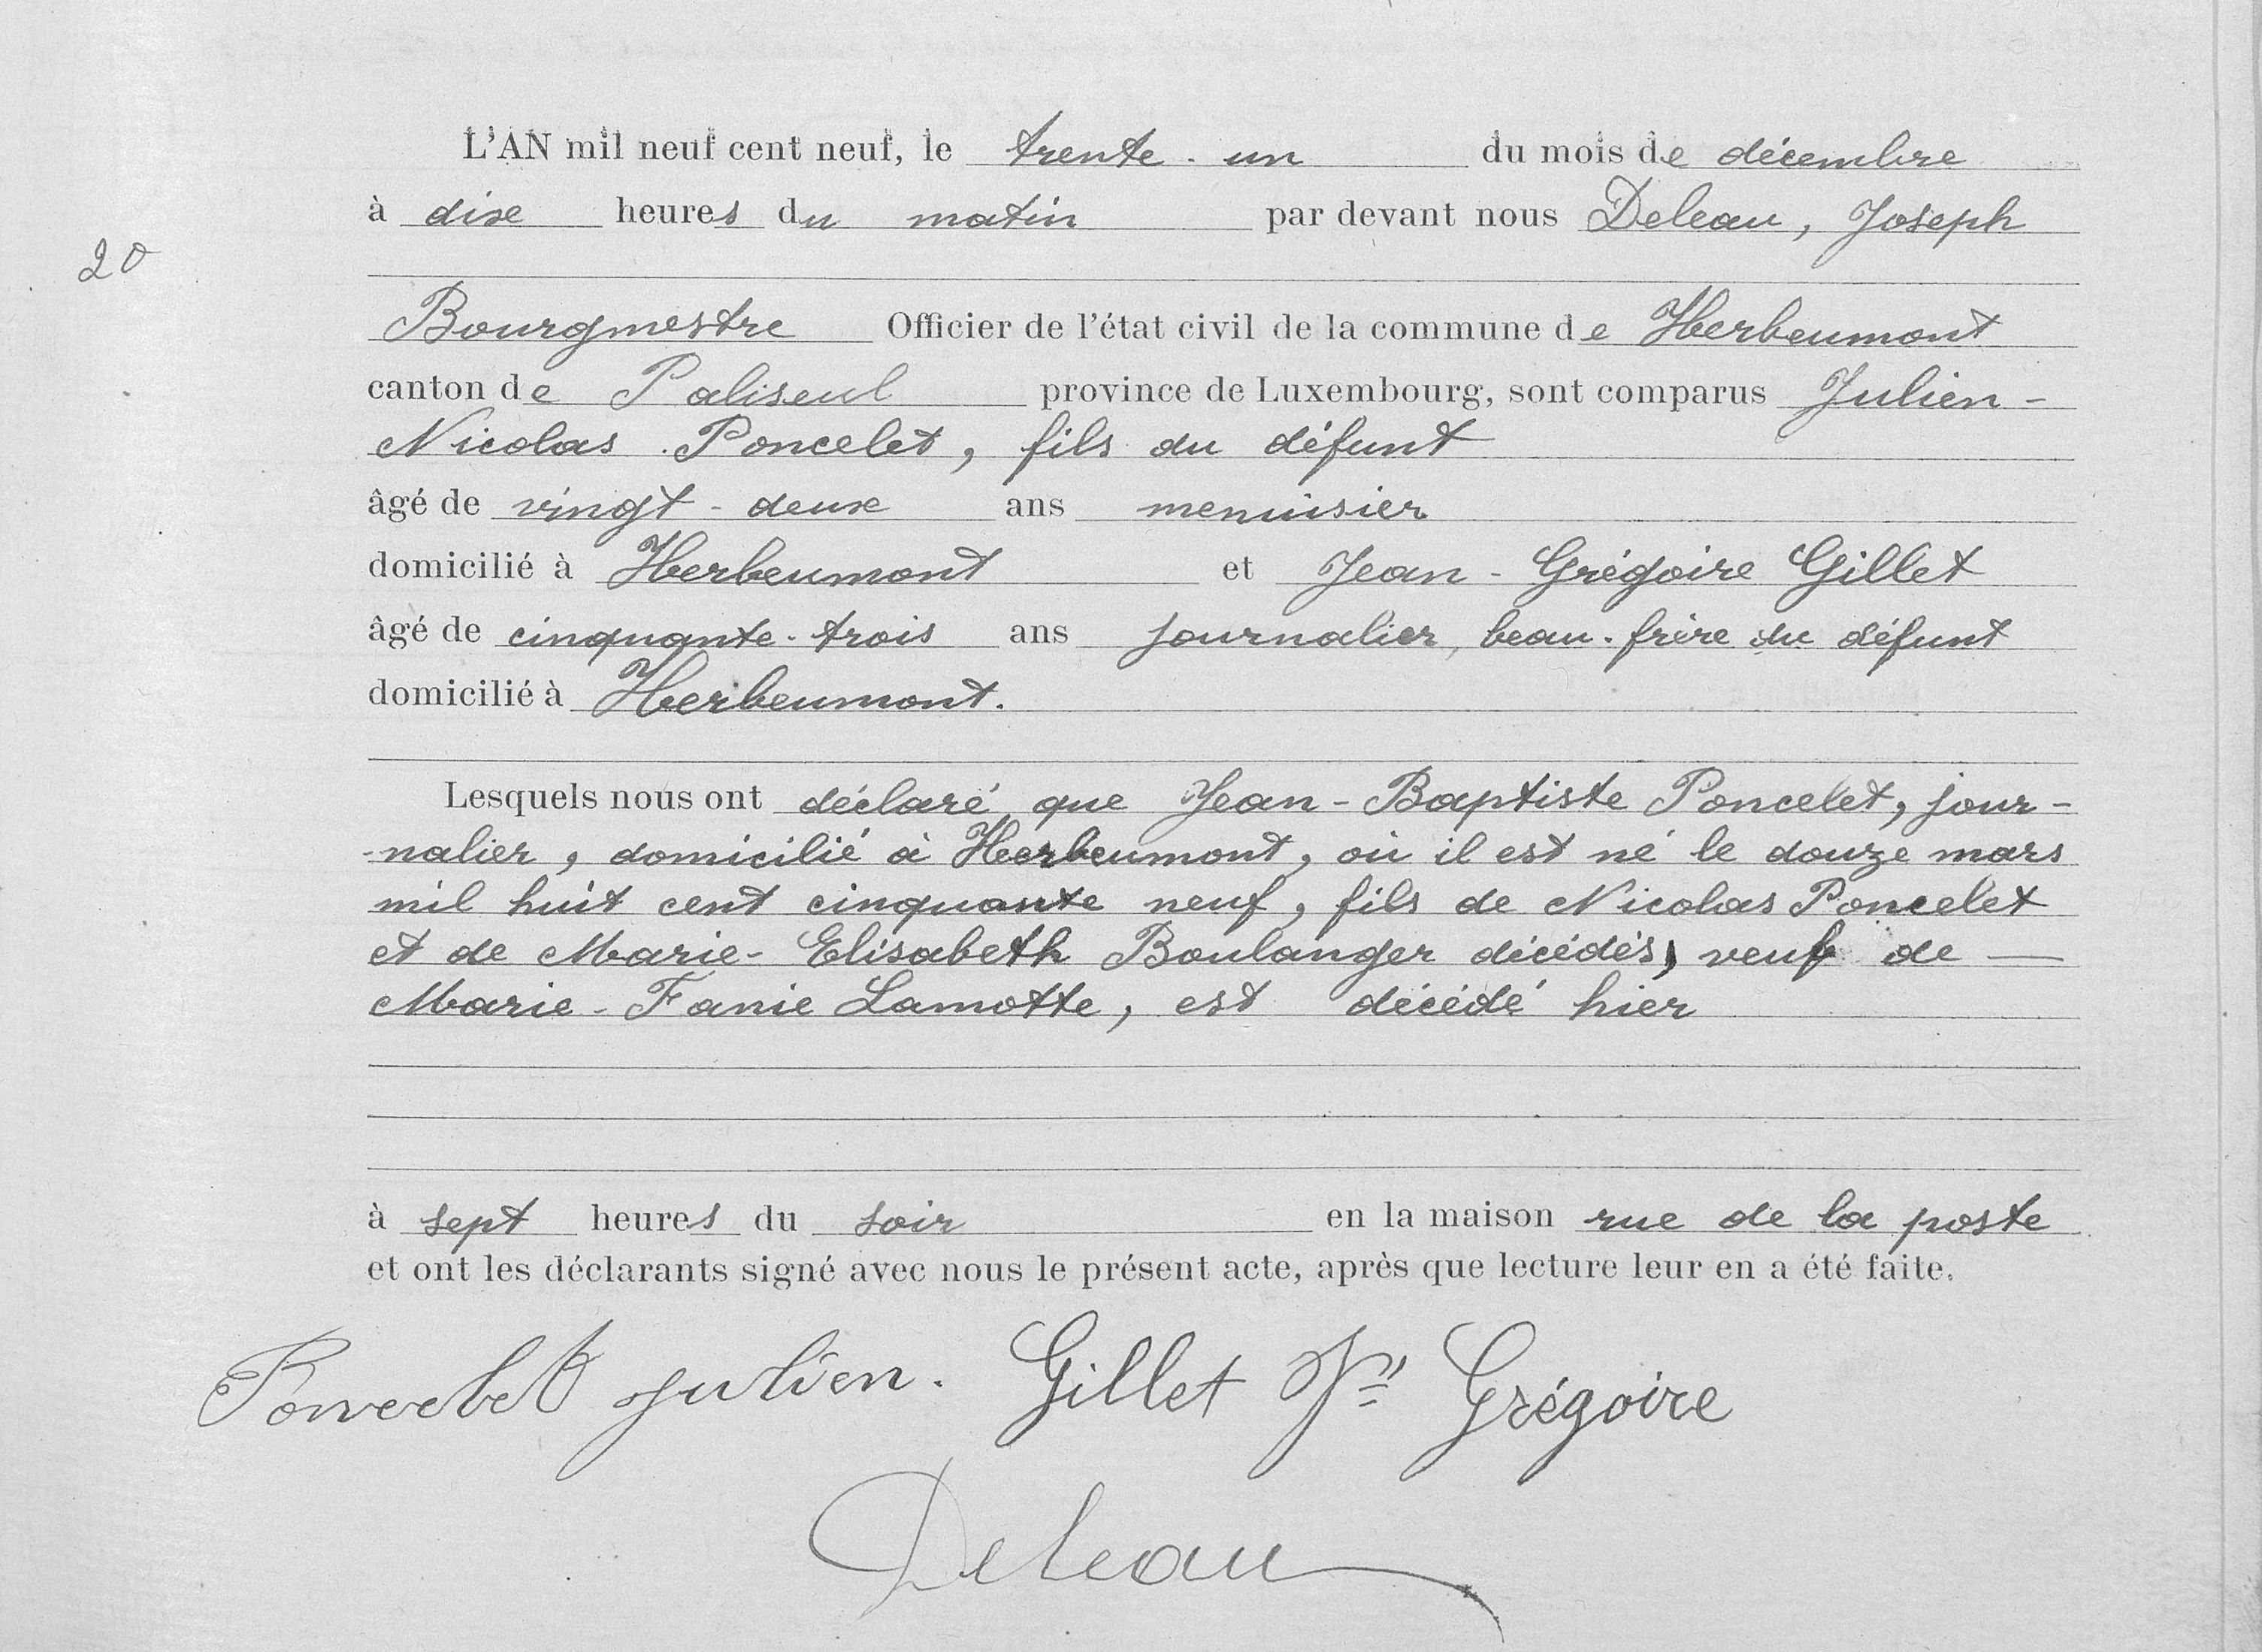 L'AN mil neuf cent neuf, le trente-un du mois de décembre
à dix heures du matin par devant nous Deleau, Joseph
20
Bourgmestre Officier de l'état civil de la commune de Herbeumont
canton de Paliseul province de Luxembourg, sont comparus Julien-
Nicolas Poncelet, fils du défunt
âgé de vingt-deux ans menuisier
domicilié à Herbeumont et Jean-Grégoire Gillet
âgé de cinquante-trois ans journalier, beau-frère du défunt
domicilié à Herbeumont.
Lesquels nous ont déclaré que Jean-Baptiste Poncelet, jour-
-nalier, domicilié à Herbeumont, où il est né le douze mars
mil huit cent cinquante neuf, fils de Nicolas Poncelet
et de Marie-Elisabeth Boulanger décédés, veuf de —
Marie-Fanie Lamotte, est décédé hier
à sept heures du soir en la maison rue de la poste
et ont les déclarants signé avec nous le présent acte, après que lecture leur en a été faite.
Poncelet Julien. Gillet Jn Grégoire
Deleau